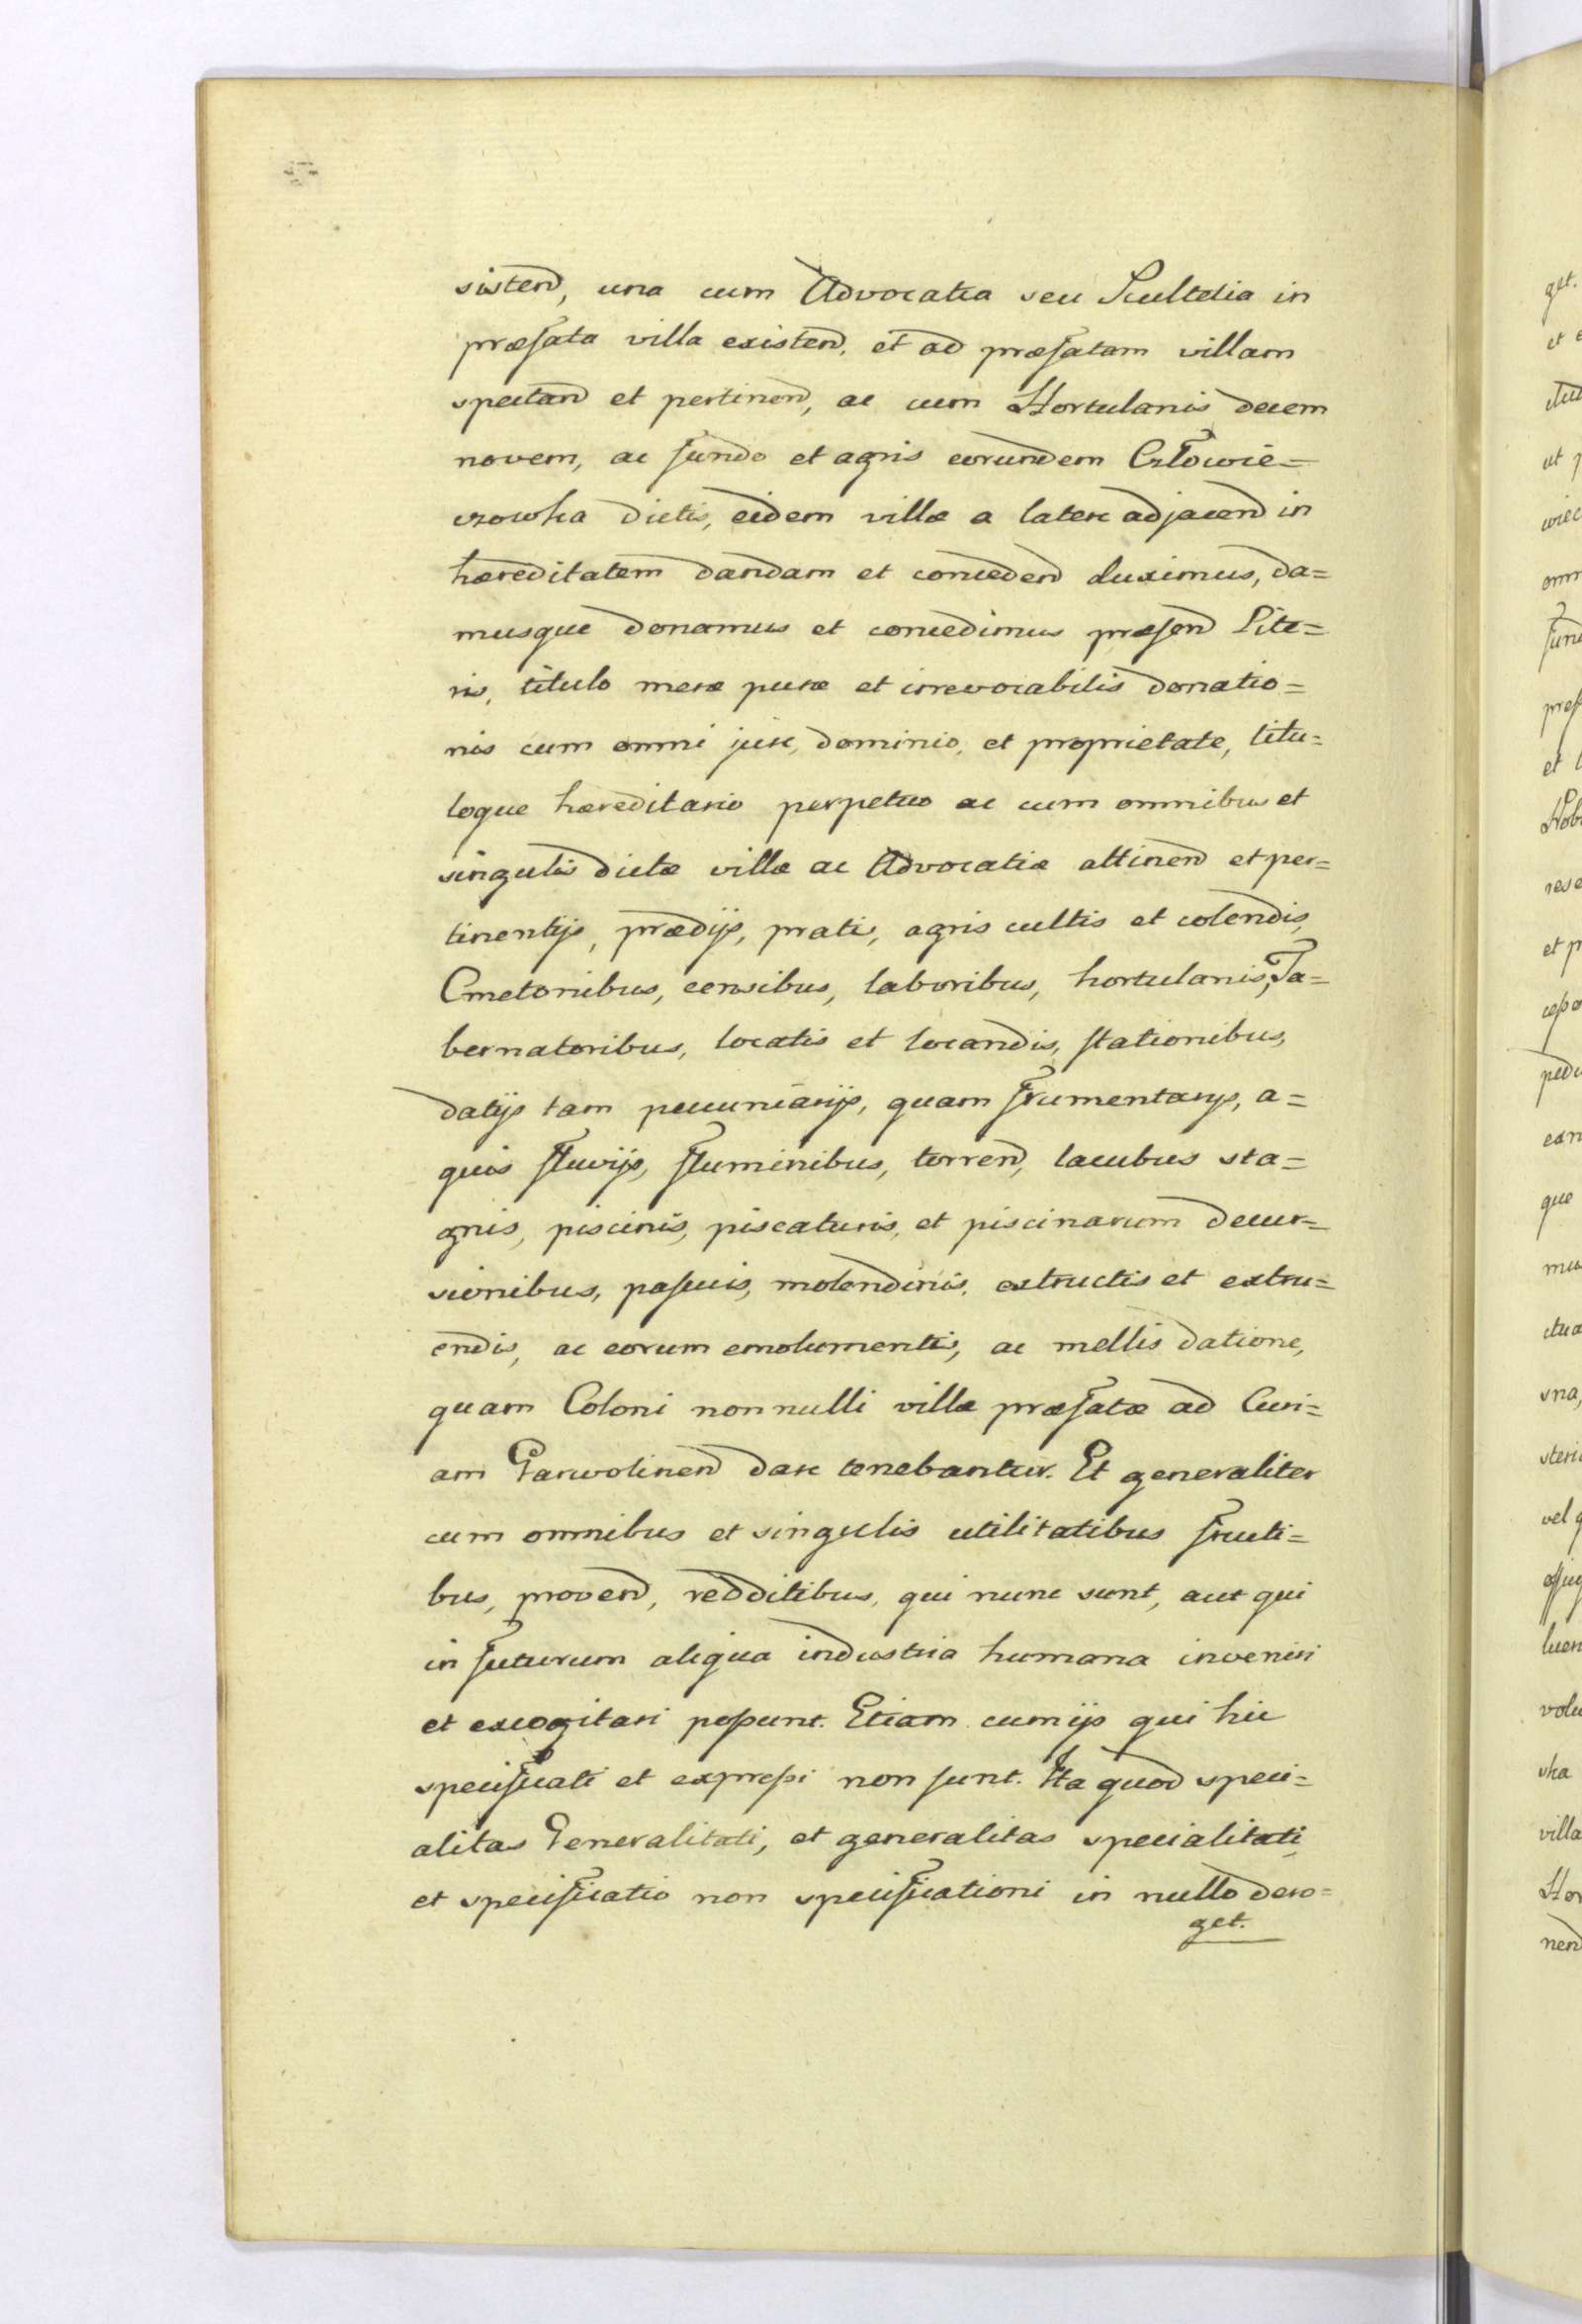 sistend, una cum Advocatia seu Scultetia in
præfata villa existend, et ad præfatam villam
spectand et pertinend, ac cum Hortulanis decem
novem, ac fundo et agris eorundem Człowie=
czowka dictis, eidem villæ a latere adjacend in
hæreditatem dandam et concedend duximus, da=
musque donamus et concedimus præsend Lite=
ris, titulo meræ puræ et irrevocabilis donatio=
nis cum omni jure, dominio, et proprietate, titu=
loque hæreditario perpetuo ac cum omnibus et
singulis dictæ villæ ac Advocatiæ attinend et per=
tinentijs, prædijs, pratis, agris cultis et colendis,
Cmetonibus, censibus, laboribus, hortulanis, Ta=
bernatoribus, locatis et locandis, stationibus,
datijs tam pecuniarijs, quam frumentarijs, a=
quis fluvijs, fluminibus, torrend, lacubus sta=
gnis, piscinis, piscaturis, et piscinarum decur=
sionibus, pascuis, molendinis, extructis et extru=
endis, ac eorum emolumentis, ac mellis datione,
quam Coloni nonnulli villæ præfatæ ad Curi=
am Garwolinend dare tenebantur. Et generaliter
cum omnibus et singulis utilitatibus fructi=
bus, provend, redditibus, qui nunc sunt, aut qui
in futurum aliqua industria humana inveniri
et excogitari possunt. Etiam cum ijs qui hic
specificati et expressi non sunt. Ita quod speci=
alitas Generalitati, et generalitas specialitati,
et specificatio non specificationi in nullo dero=
get.